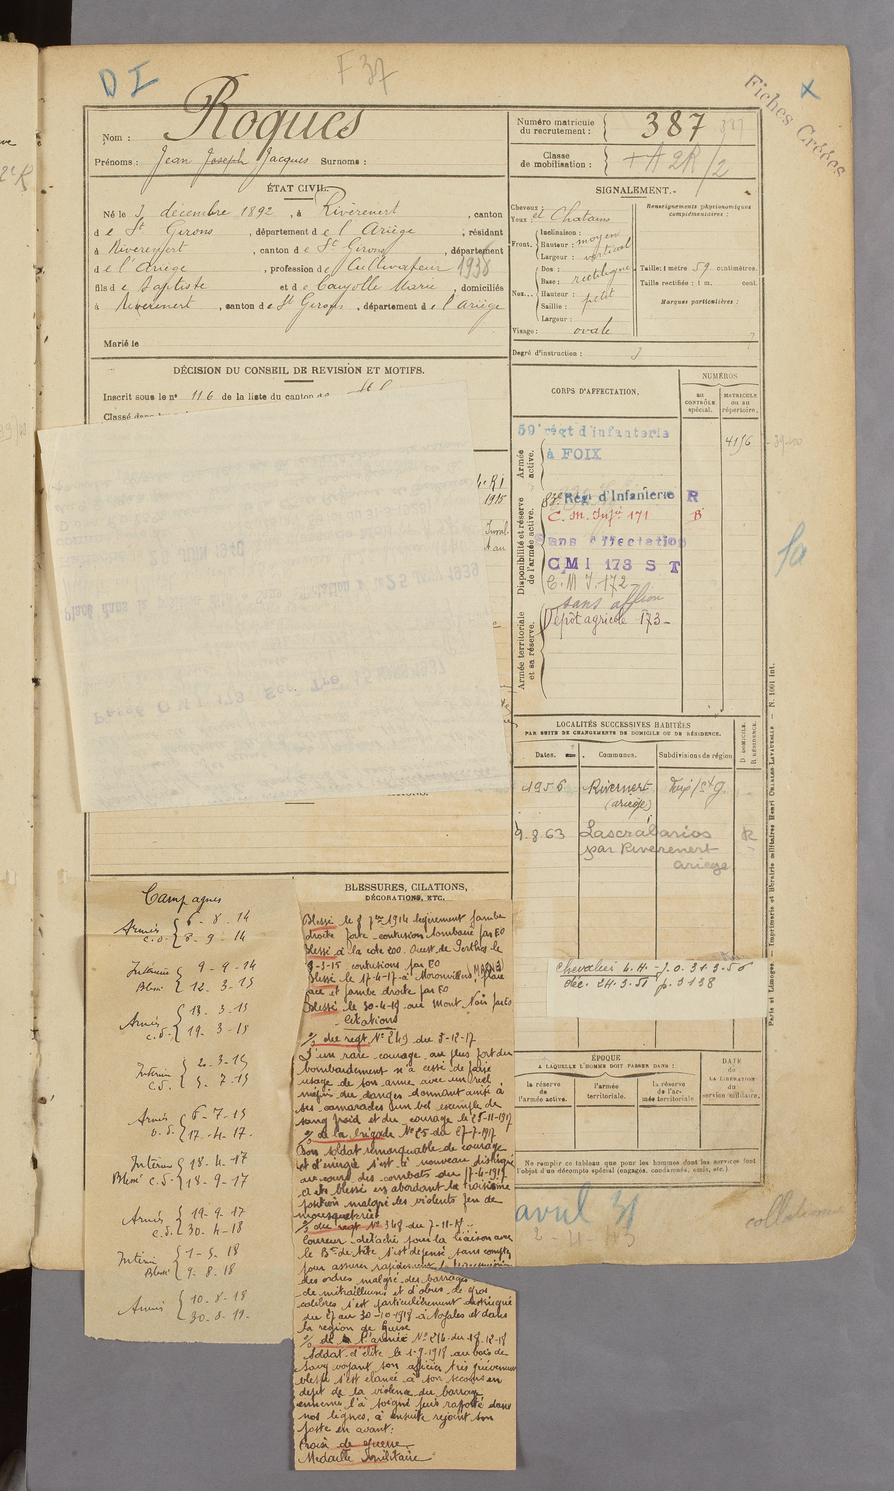 D I
F 37
Fiches Créées
Nom : Roques
Prénoms : Jean Joseph Jacques Surnoms :
Numéro matricule du recrutement : 387
Classe de mobilisation :
ÉTAT CIVIL.
Né le 3 décembre 1892, à Rivèrenert, canton
de St Girons, département de l'Ariège, résidant
à Rivèrenert, canton de St Girons, département
de l'Ariège, profession de Cultivateur 1936
fils de Baptiste et de Cauyolle Marie, domiciliés
à Rivèrenert, canton de St Girons, département de l'Ariège
Marié le
SIGNALEMENT.
Cheveux :
Yeux : et Chatains
Front. Inclinaison :
Hauteur : moyen
Largeur : vertical
Nez... Dos :
Base : rectiligne
Hauteur : petit
Saillie :
Largeur :
Visage : ovale
Renseignements physionomiques complémentaires :
Taille : 1 mètre 59 centimètres.
Taille rectifiée : 1 m. cent.
Marques particulières :
Degré d'instruction : 3
DÉCISION DU CONSEIL DE REVISION ET MOTIFS.
Inscrit sous le n° 116 de la liste du canton de
Classé dans
CORPS D'AFFECTATION.
NUMÉROS
au CONTRÔLE spécial.
MATRICULE ou au répertoire.
Armée active.
59e régt d'infanterie
à FOIX
4156
Disponibilité et réserve de l'armée active.
83e Régt d'Infanterie R
C. M. Infie 171 B
Sans affectation
CMI 173 S T
C. M I. 172
Armée territoriale et sa réserve.
sans affion
Dépôt agricole 173
LOCALITÉS SUCCESSIVES HABITÉES
PAR SUITE DE CHANGEMENTS DE DOMICILE OU DE RÉSIDENCE.
Dates. Communes. Subdivisions de région
D. DOMICILE.
R. RÉSIDENCE.
1956 Rivernert Foix/St g.
(ariège)
9.8.63 Lascrabarios R
par Riverenert
ariege
Chevalier L.H.
ÉPOQUE
A LAQUELLE L'HOMME DOIT PASSER DANS :
la réserve de l'armée active.
l'armée territoriale.
la réserve de l'armée territoriale
DATE de LA LIBÉRATION du service militaire.
Ne remplir ce tableau que pour les hommes dont les services font
l'objet d'un décompte spécial (engagés, condamnés, omis, etc.)
avril 31
Paris et Limoges. — Imprimerie et librairie militaires Henri CHARLES-LAVAUZELLE — N. 1001 Int.
Campagnes
Armés 6-8-14
C.D. 8-9-14
Intérieur 9-9-14
Blessé 12-3-15
Armés 13-3-15
C.D. 19-3-15
Intérieur 20-3-15
C.S. 5-7-15
Armés 6-7-15
C.D. 17-4-17.
Intérieur 18-4-17
Blessé C.S. 18-9-17
Armés 19-9-17
C.D. 30-4-18
Intérieur 1-5-18
Blessé 9-8-18
Armés 10-8-18
30-8-19.
BLESSURES, CITATIONS,
DÉCORATIONS, ETC.
Blessé le 8 7bre 1914 légèrement jambe
droite forte contusion lombaire par EO
Blessé à la cote 200. Ouest de Perthes le
contusions par EO
Blessé le 17-4-17 à Moronvillers, plaie
face et jambe droite par EO
Blessé le 30-4-18 au Mont Noir par EO
Citations
O/ du regt N° 249 du 8-12-17
D'un rare courage au plus fort du
bombardement n'a cessé de faire
usage de son arme avec un réel
mépris du danger donnant ainsi à
ses camarades un bel exemple de
sang froid et du courage le 25-11-1917
O/ de la brigade N° 25 du 27-7-1917
Bon soldat remarquable de courage
et d'énergie s'est à nouveau distingué
au cours des combats du 17-4-1917
a été blessé en abordant la troisième
position malgré les violents feux de
mousqueterie
O/ du regt N° 348 du 7-11-18
Coureur détaché pour la liaison avec
le Bon de tête s'est dépensé sans compter
pour assurer rapidement la transmission
des ordres malgré des barrages
de mitrailleuses et d'obus de gros
calibres s'est particulièrement distingué
du 27 au 30-10-1918 à Noyales et dans
la région de Guise
O/ de l'armée N° 216 du 18-12-18
Soldat d'élite le 1-9-1918 au bois de
Savy voyant son officier très grièvement
blessé s'est élancé à son secours en
dépit de la violence du barrage
ennemi l'a soigné puis rapporté dans
nos lignes, a ensuite rejoint son
poste en avant.
Croix de guerre
Médaille militaire